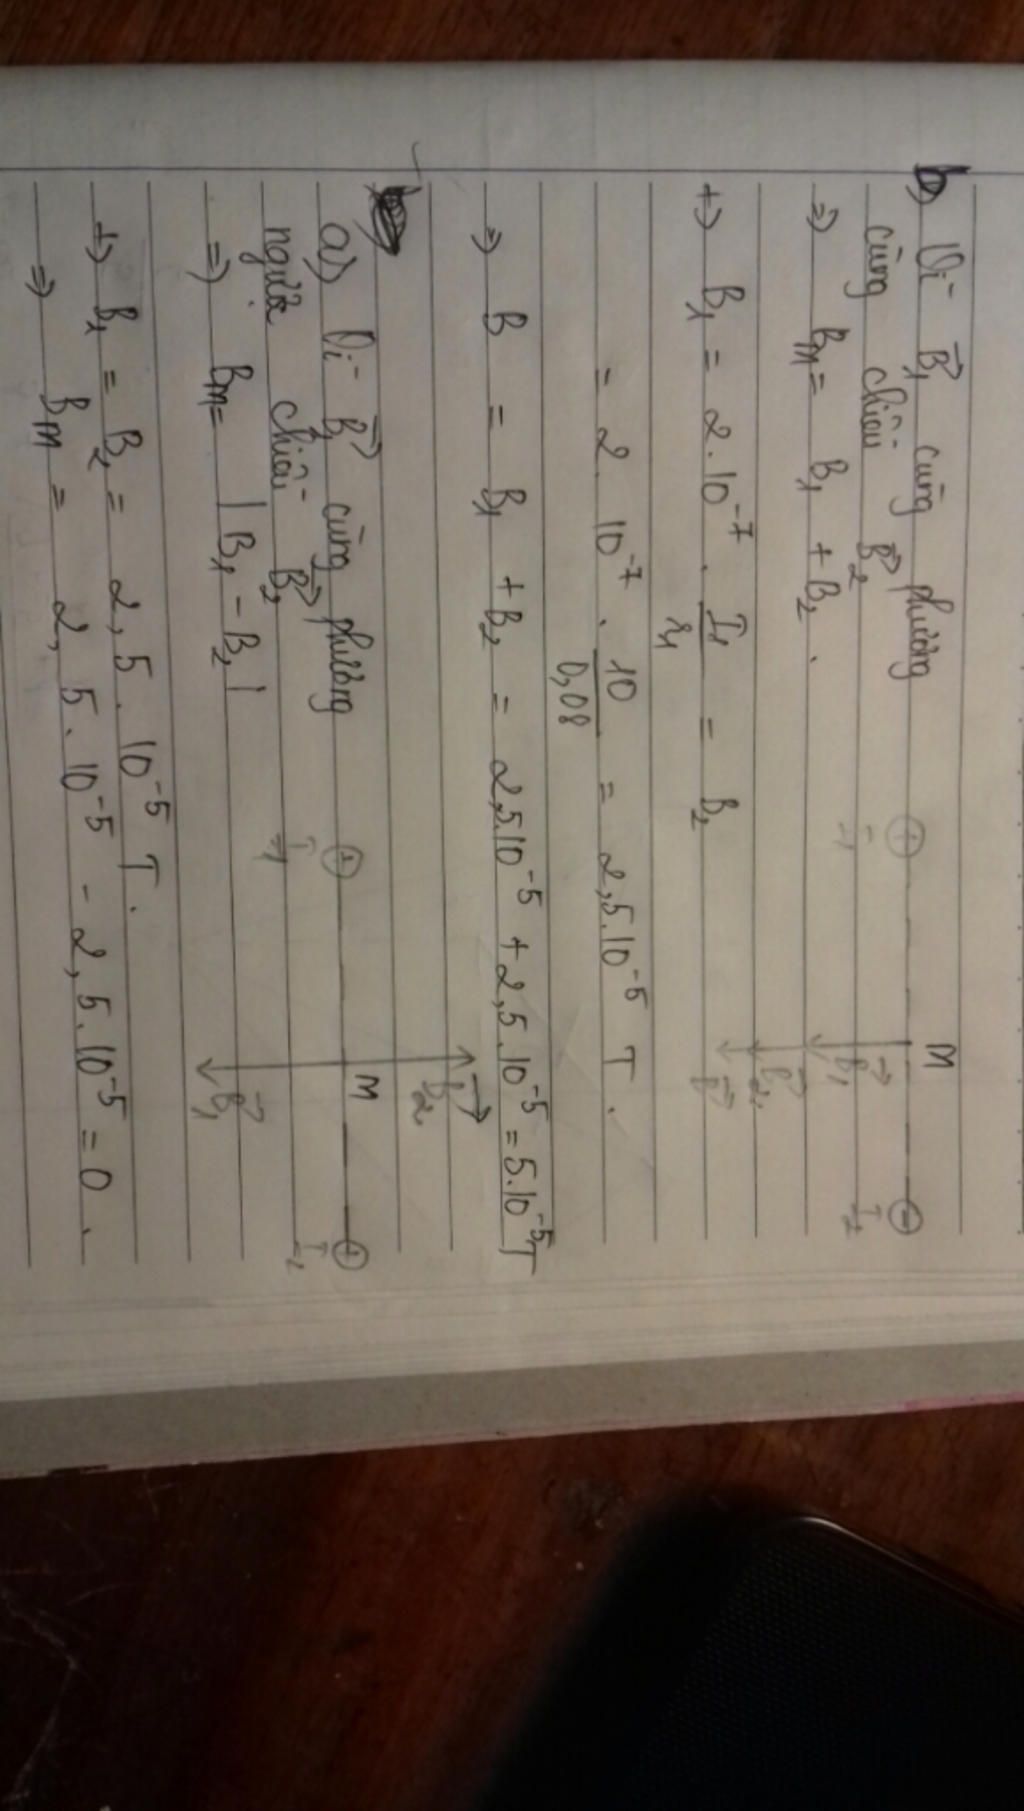 b) Vì B₁→ cùng phương
cùng chiều B₂→
⇒ Bₘ = B₁ + B₂.
+) B₁ = 2.10⁻⁷ . I₁/r₁ = B₂
= 2.10⁻⁷ . 10/0,08 = 2,5.10⁻⁵ T.
⇒ B = B₁ + B₂ = 2,5.10⁻⁵ + 2,5.10⁻⁵ = 5.10⁻⁵T
M
I₁
I₂
B₁→
B₂→
B→
a) Vì B₁→ cùng phương
ngược chiều B₂→
⇒ Bₘ = |B₁ - B₂|
B₂→
M
I₁
I₂
B₁→
+) B₁ = B₂ = 2,5.10⁻⁵ T.
⇒ Bₘ = 2,5.10⁻⁵ - 2,5.10⁻⁵ = 0.